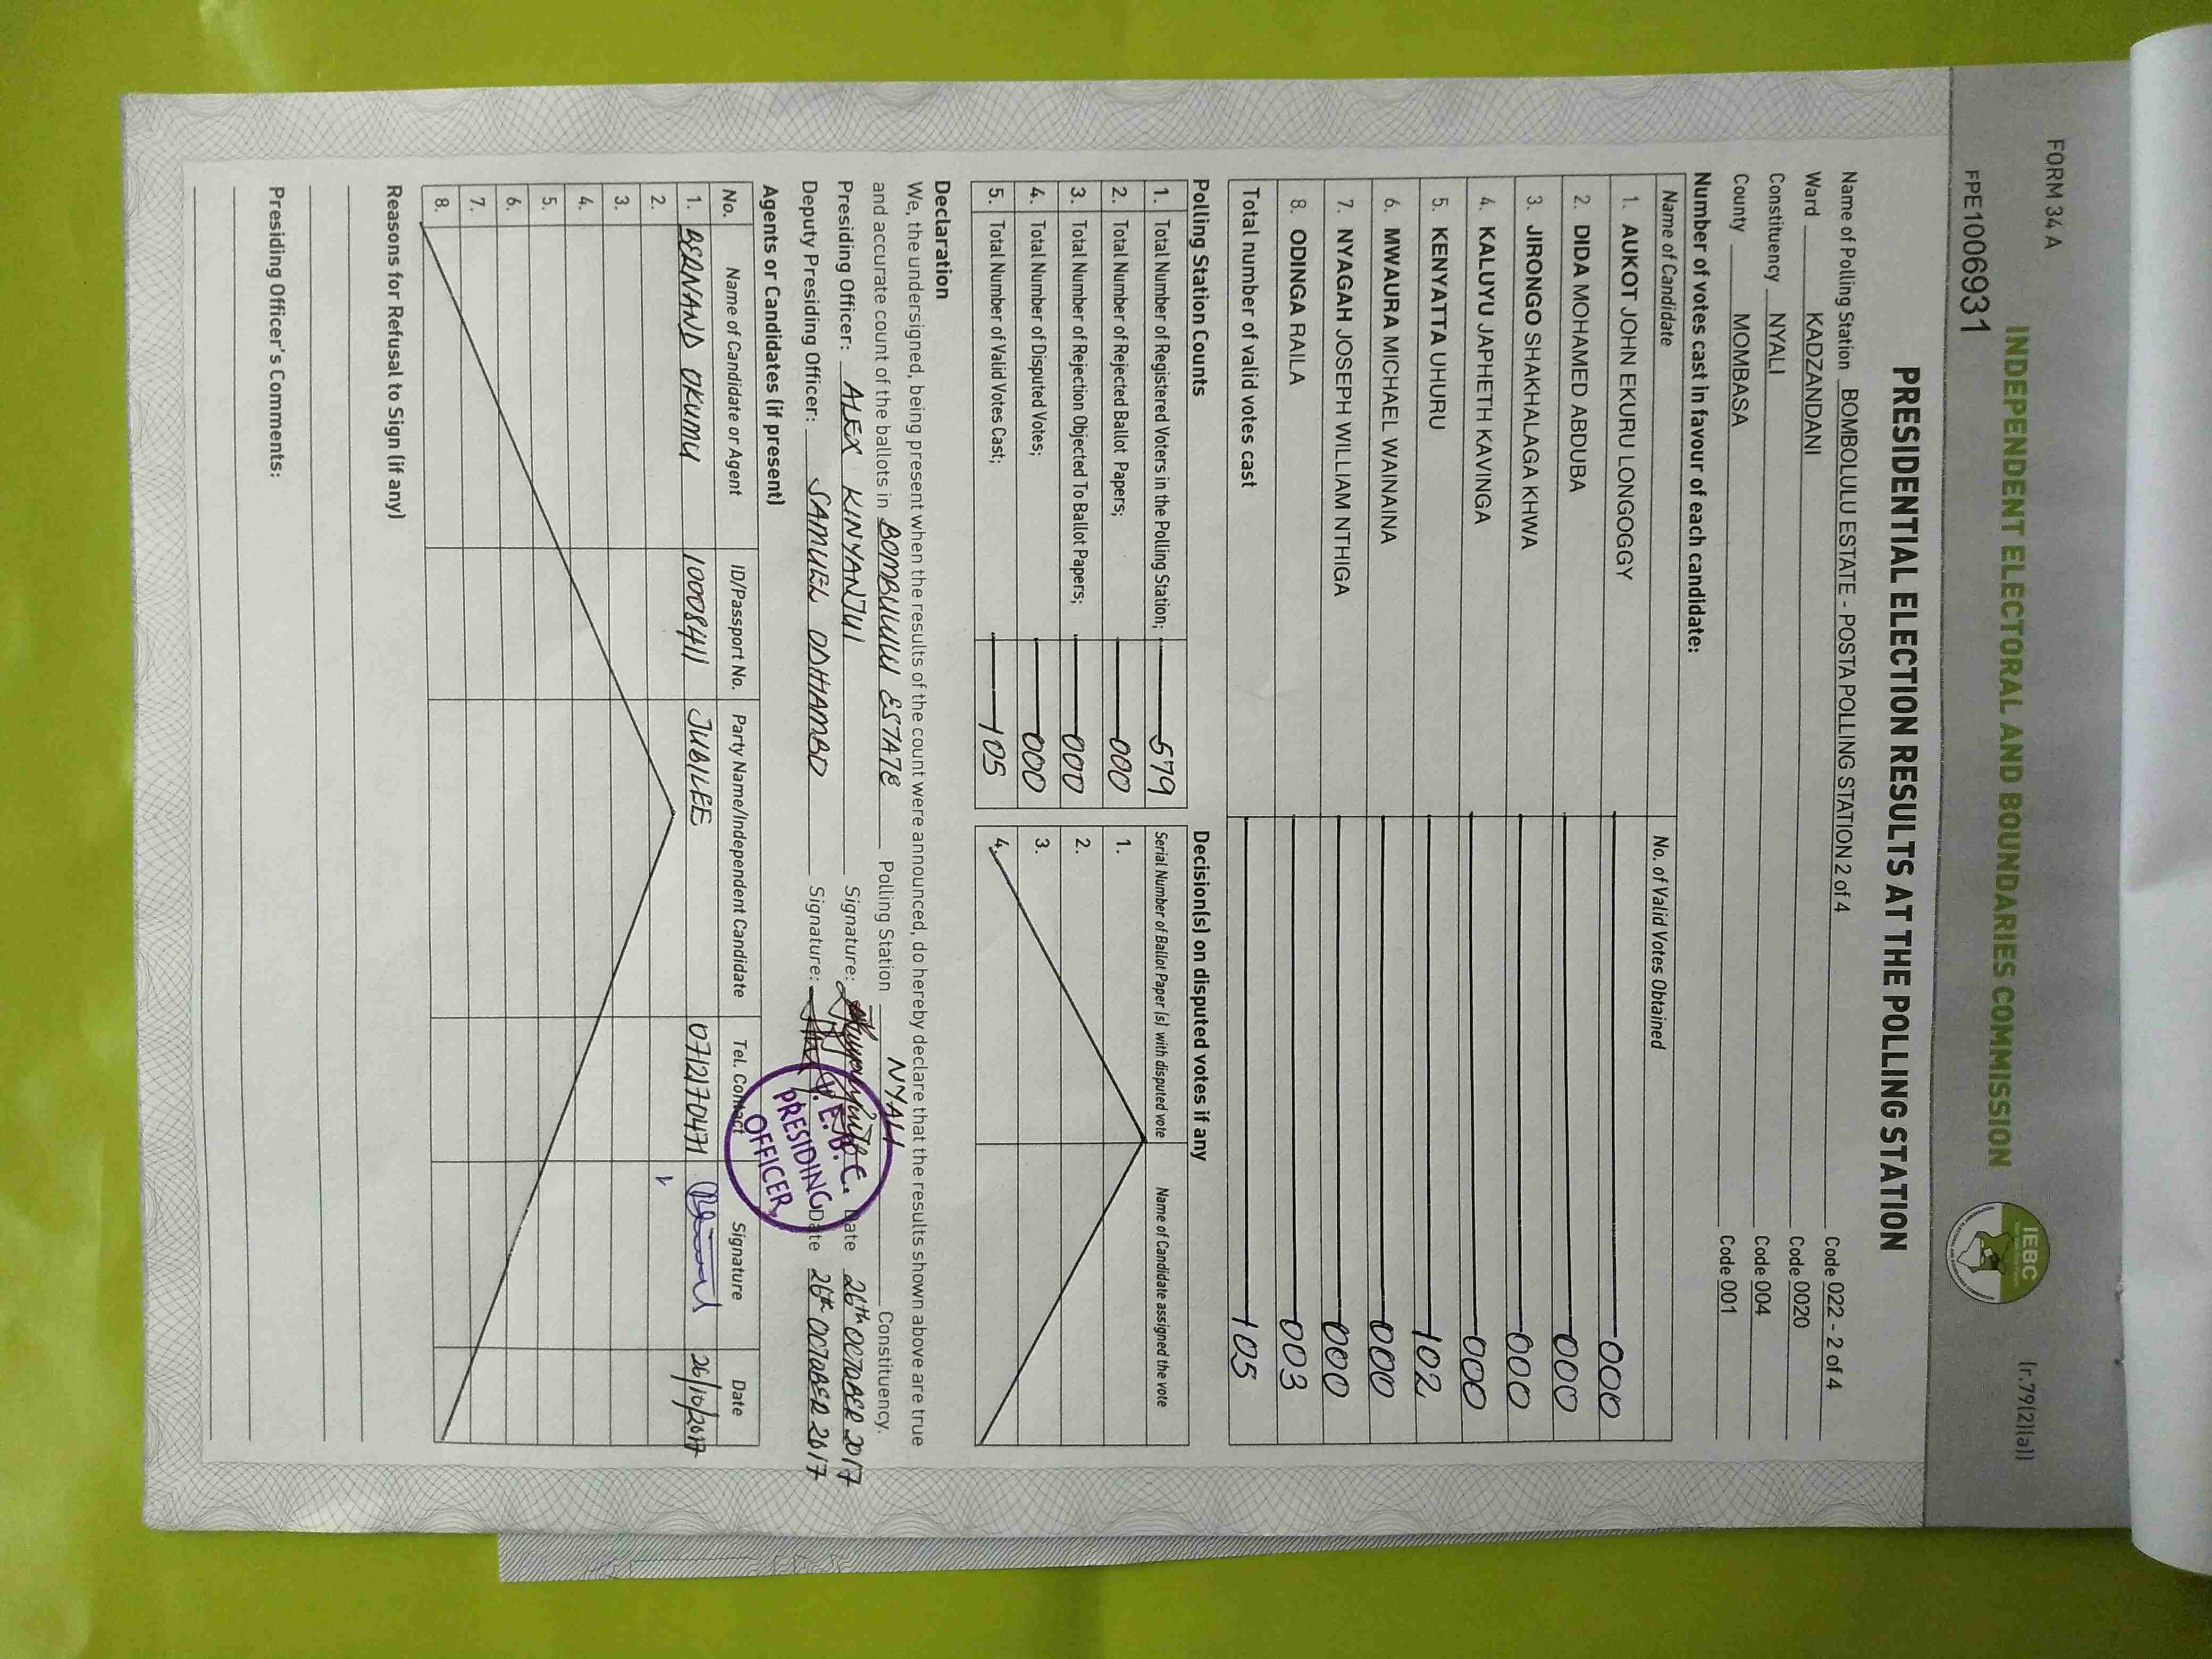 FORM 34 A
(r.79(2)(a))
INDEPENDENT ELECTORAL AND BOUNDARIES COMMISSION
IEBC
FPE1006931
PRESIDENTIAL ELECTION RESULTS AT THE POLLING STATION
Name of Polling Station BOMBOLULU ESTATE - POSTA POLLING STATION 2 of 4 Code 022 - 2 of 4
Ward KADZANDANI Code 0020
Constituency NYALI Code 004
County MOMBASA Code 001
Number of votes cast in favour of each candidate:
Name of Candidate No. of Valid Votes Obtained
1. AUKOT JOHN EKURU LONGOGGY 000
2. DIDA MOHAMED ABDUBA 000
3. JIRONGO SHAKHALAGA KHWA 000
4. KALUYU JAPHETH KAVINGA 000
5. KENYATTA UHURU 102
6. MWAURA MICHAEL WAINAINA 000
7. NYAGAH JOSEPH WILLIAM NTHIGA 000
8. ODINGA RAILA 003
Total number of valid votes cast 105
Polling Station Counts Decision(s) on disputed votes if any
1. Total Number of Registered Voters in the Polling Station; 579 Serial Number of Ballot Paper (s) with disputed vote Name of Candidate assigned the vote
2. Total Number of Rejected Ballot Papers; 000 1.
3. Total Number of Rejection Objected To Ballot Papers; 000 2.
4. Total Number of Disputed Votes; 000 3.
5. Total Number of Valid Votes Cast; 105 4.
Declaration
We, the undersigned, being present when the results of the count were announced, do hereby declare that the results shown above are true
and accurate count of the ballots in BOMBULULU ESTATE Polling Station NYALI Constituency.
Presiding Officer: ALEX KINYANJUI Signature: Date 26th OCTOBER 2017
Deputy Presiding Officer: SAMUEL ODHIAMBO Signature: Date 26th OCTOBER 2017
I. E. B. C.
PRESIDING
OFFICER
Agents or Candidates (if present)
No. Name of Candidate or Agent ID/Passport No. Party Name/Independent Candidate Tel. Contact Signature Date
1. BERNAND OKUMU 10008411 JUBILEE 0712170471 26/10/2017
2.
3.
4.
5.
6.
7.
8.
Reasons for Refusal to Sign (if any)
Presiding Officer's Comments: